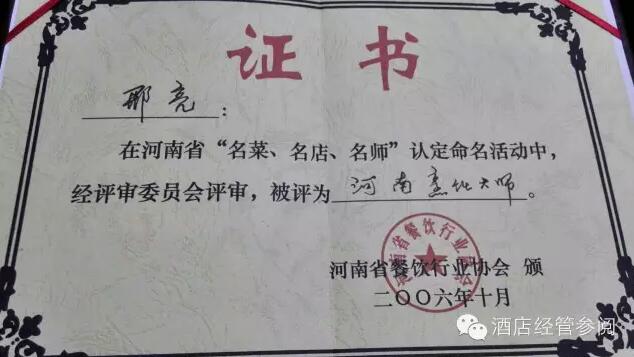 证书
邢亮：
在河南省“名菜、名店、名师”认定命名活动中，
经评审委员会评审，被评为河南烹饪大师。
河南省餐饮行业协会
河南省餐饮行业协会 颁
二〇〇六年十月
酒店经管参阅